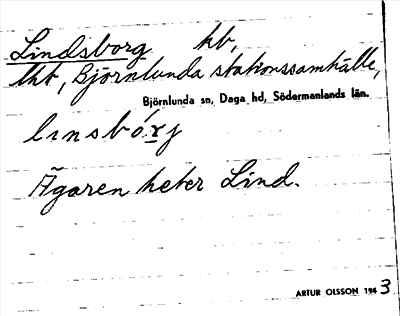 Lindsborg hb,
lht, Björnlunda stationssamhälle,
Björnlunda sn, Daga hd, Södermanlands län.
linsbórj
Ägaren heter Lind.
ARTUR OLSSON 1943